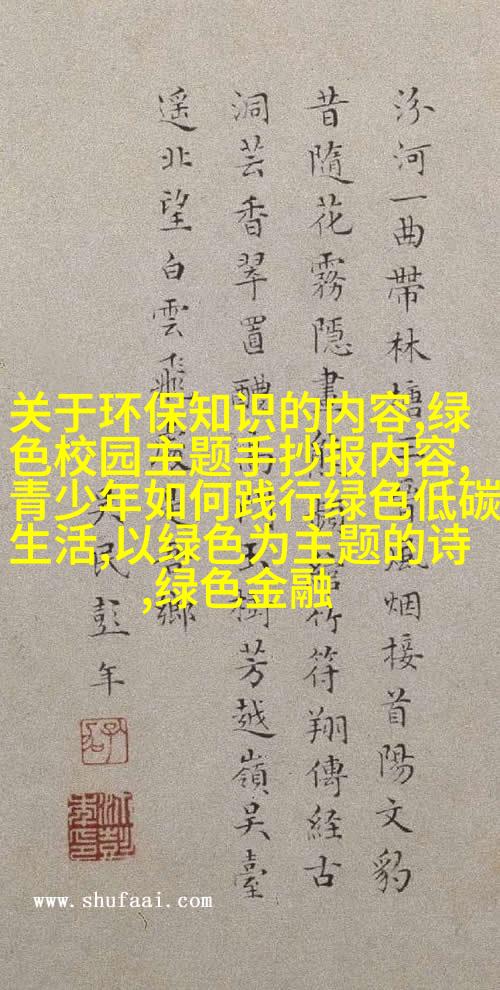 汾河一曲帶林塘
風烟接首陽文豹
昔隨花霧隱書
竹符翔傳經古
洞芸香翠置
芳越嶺吳臺
遥北望白雲飛
鄉
吴民彭年
关于环保知识的内容,绿
色校园主题手抄报内容,
青少年如何践行绿色低碳
生活,以绿色为主题的诗
,绿色金融
www.shufaai.com